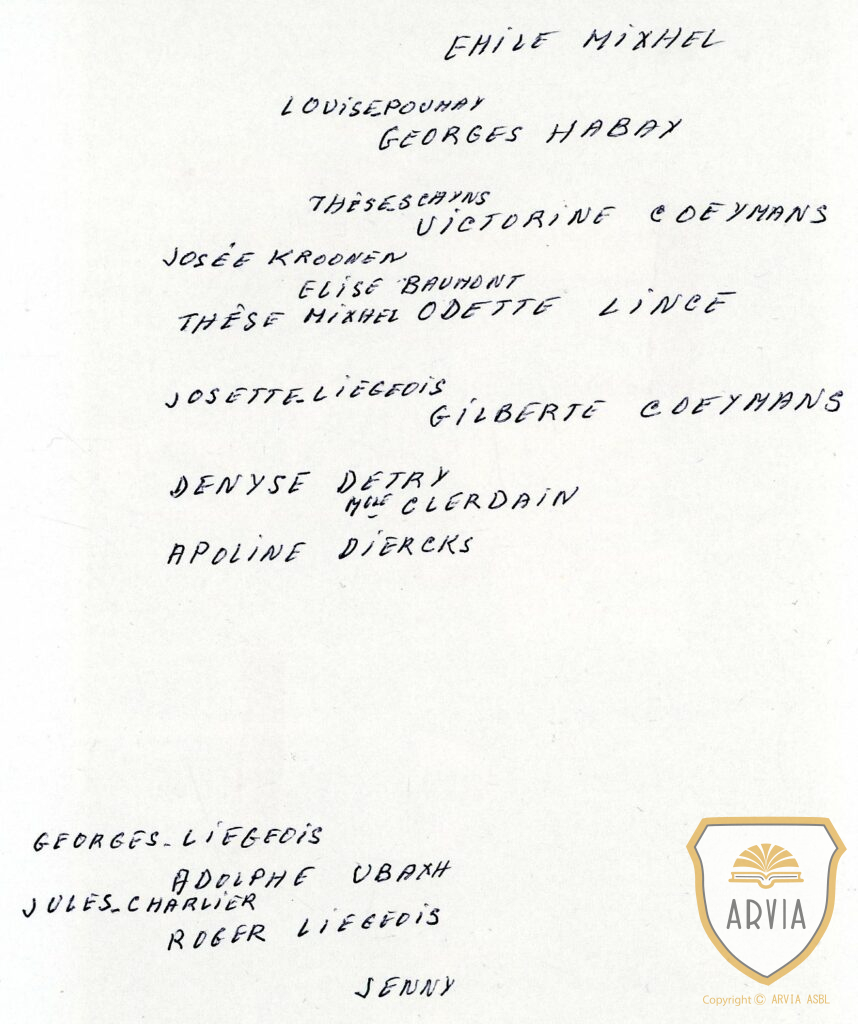 EMILE MIXHEL
LOUISE POUMAY
GEORGES HABAY
THÈSE SCAYNS
VICTORINE COEYMANS
JOSÉE KROONEN
ELISE BAUMONT
THÈSE MIXHEL ODETTE LINCE
JOSETTE LIEGEOIS
GILBERTE COEYMANS
DENYSE DETRY
Mlle CLERDAIN
APOLINE DIERCKS
GEORGES LIEGEOIS
ADOLPHE UBAXH
JULES CHARLIER
ROGER LIEGEOIS
JENNY
ARVIA
Copyright © ARVIA ASBL